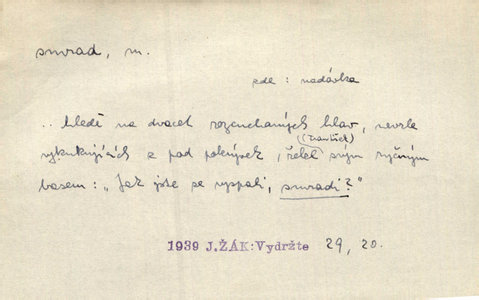 smrad, m.
zde : nadávka
.. hledě na dvacet rozcuchaných hlav, nevrle
(František)
vykukujících z pod pokrývek, řekl svým ryčným
basem: „Jak jste se vyspali, smradi?"
1939 J.ŽÁK:Vydržte 29, 20.